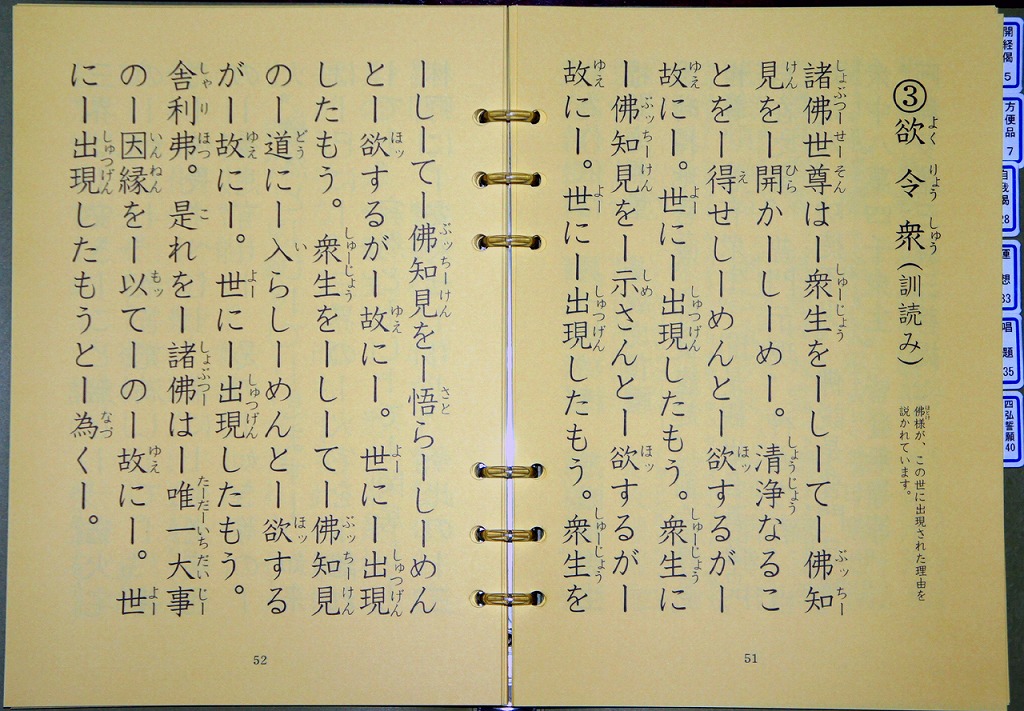 ③欲令衆(訓読み)
佛様が、この世に出現された理由を
説かれています。
諸佛世尊はー衆生をーしーてー佛知
見をー開かーしーめー。清浄なるこ
とをー得せしーめんとー欲するがー
故にー。世にー出現したもう。衆生に
ー佛知見をー示さんとー欲するがー
故にー。世にー出現したもう。衆生を
51
ーしーてー佛知見をー悟らーしーめん
とー欲するがー故にー。世にー出現
したもう。衆生をーしーてー佛知見
のー道にー入らしーめんとー欲する
がー故にー。世にー出現したもう。
舎利弗。是れをー諸佛はー唯一大事
のー因縁をー以てーのー故にー。世
にー出現したもうとー為くー。
52
開経偈 5
方便品 7
自我偈 28
運想 33
唱題 35
四弘誓願 40